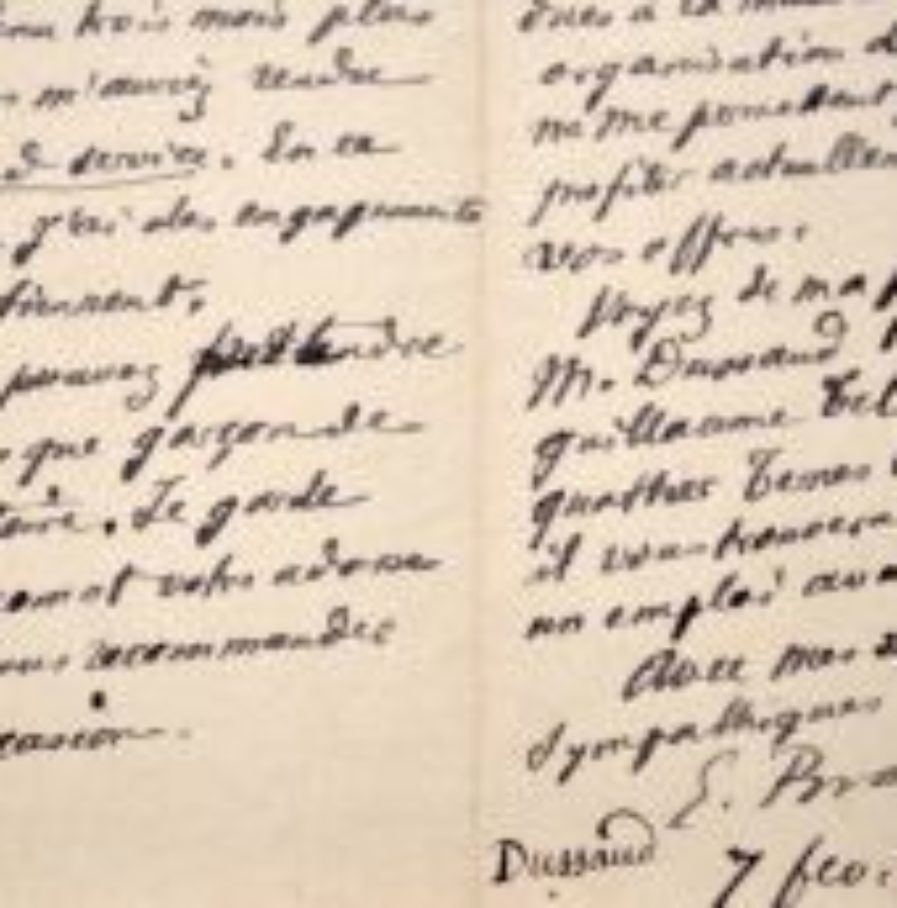 trois mois plus
m'auriez rendre
de service. En ce
j'ai des engagements
tiennent.
pouvez prétendre
que garçon de
toire. Je garde
votre adresse
recommander
casion.
organisation d
ne me permettent
profiter actuellem
vos offres.
Voyez de ma p
M. Dussaud
guillaume Tel
quartier Ternes
il vous trouvera
un emploi ava
Avec mes s
sympathiques
E.
Dussaud
7 fev.